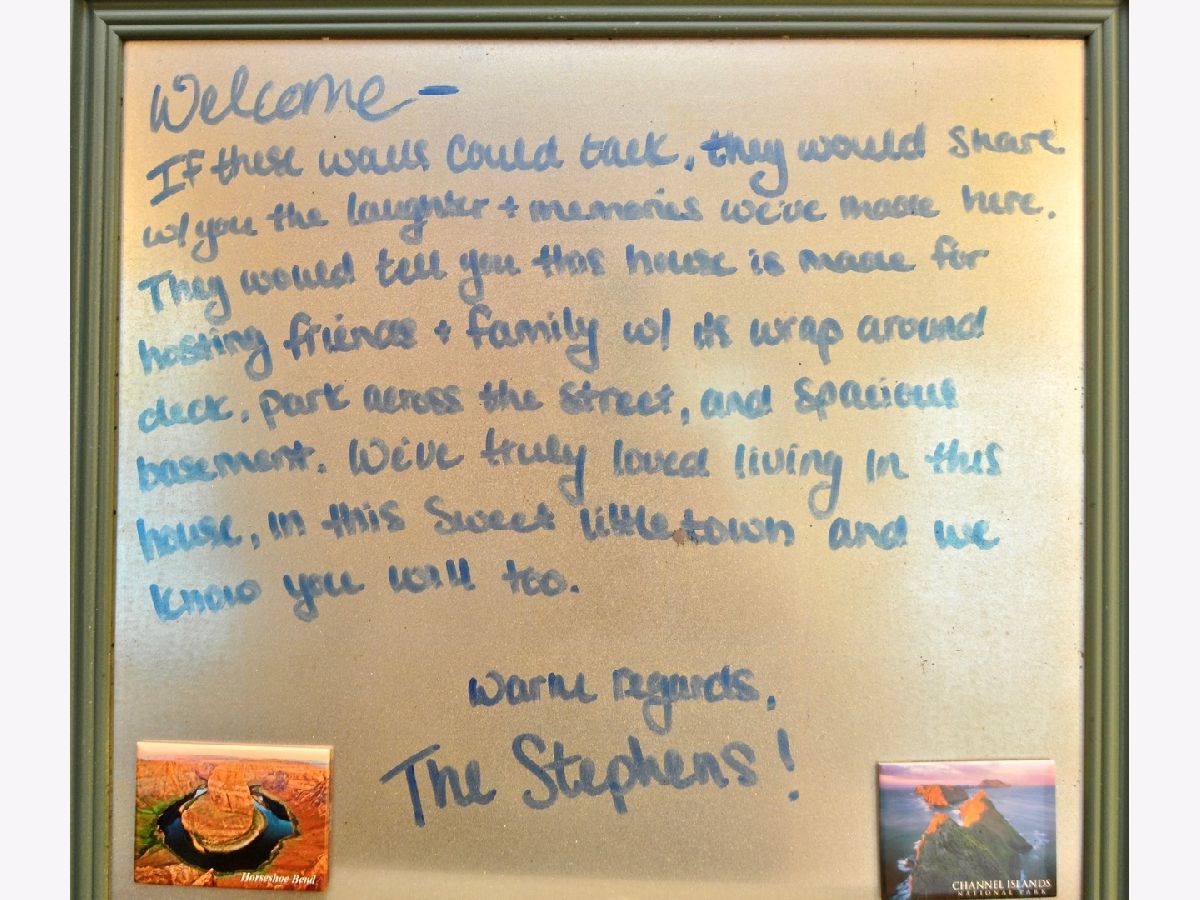 Welcome -
If these walls could talk, they would share
w/ you the laughter + memories we've made here.
They would tell you this house is made for
hosting friends + family w/ its wrap around
deck, park across the street, and spacious
basement. We've truly loved living in this
house, in this sweet little town and we
know you will too.
Warm regards,
The Stephens!
Horseshoe Bend
CHANNEL ISLANDS
NATIONAL PARK